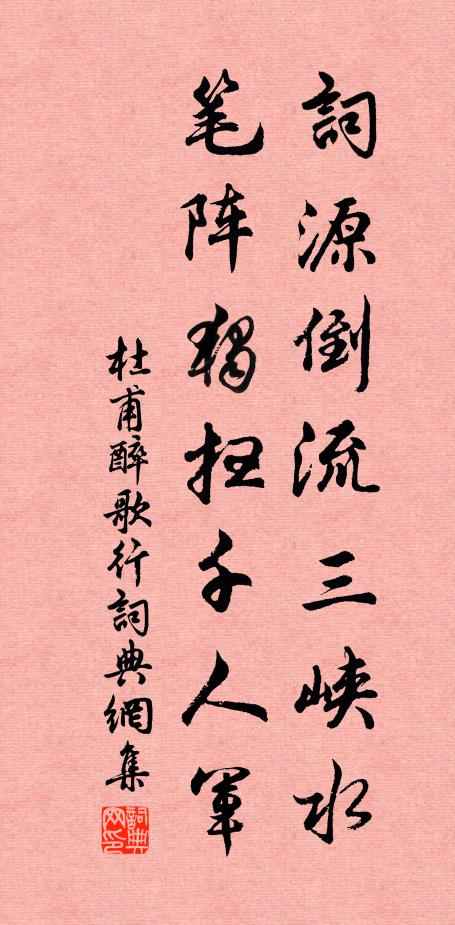 詞源倒流三峡水
笔阵獨扫千人軍
杜甫醉歌行詞典網集
詞典网印